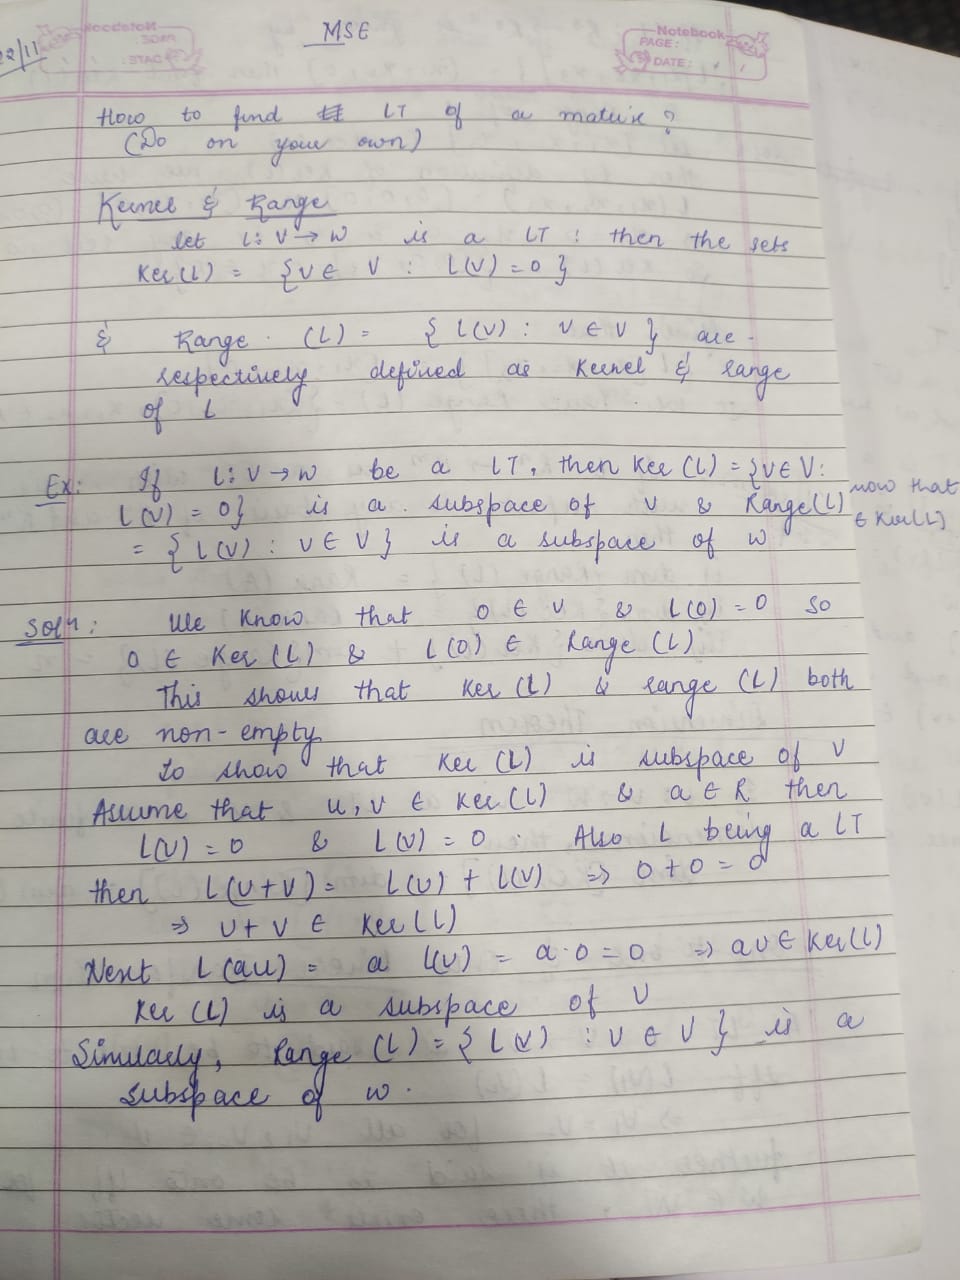 22/11
MSE
Notebook
PAGE:
DATE:
How to find LT of a matrix?
(Do on your own)
Kernel & Range
let L: V → W is a LT : then the sets
Ker(L) = {v ∈ V : L(v) = 0}
& Range (L) = { L(v) : v ∈ V } are
respectively defined as Kernel & range
of L
Ex: If L: V → W be a LT, then Ker (L) = {v ∈ V:
L(v) = 0} is a subspace of V & Range(L)
= { L(v) : v ∈ V } is a subspace of W
now that
∈ Ker(L)
Soln: We know that 0 ∈ V & L(0) = 0 so
0 ∈ Ker (L) & L(0) ∈ Range (L)
This shows that Ker (L) & range (L) both
are non-empty.
To show that Ker (L) is subspace of V
Assume that u, v ∈ Ker(L) & a ∈ R then
L(u) = 0 & L(v) = 0 . Also L being a LT
then L(u+v) = L(u) + L(v) ⇒ 0 + 0 = 0
⇒ u + v ∈ Ker(L)
Next L(au) = a L(u) = a·0 = 0 ⇒ au ∈ Ker(L)
Ker (L) is a subspace of V
Similarly, Range (L) = { L(v) : v ∈ V } is a
subspace of W.